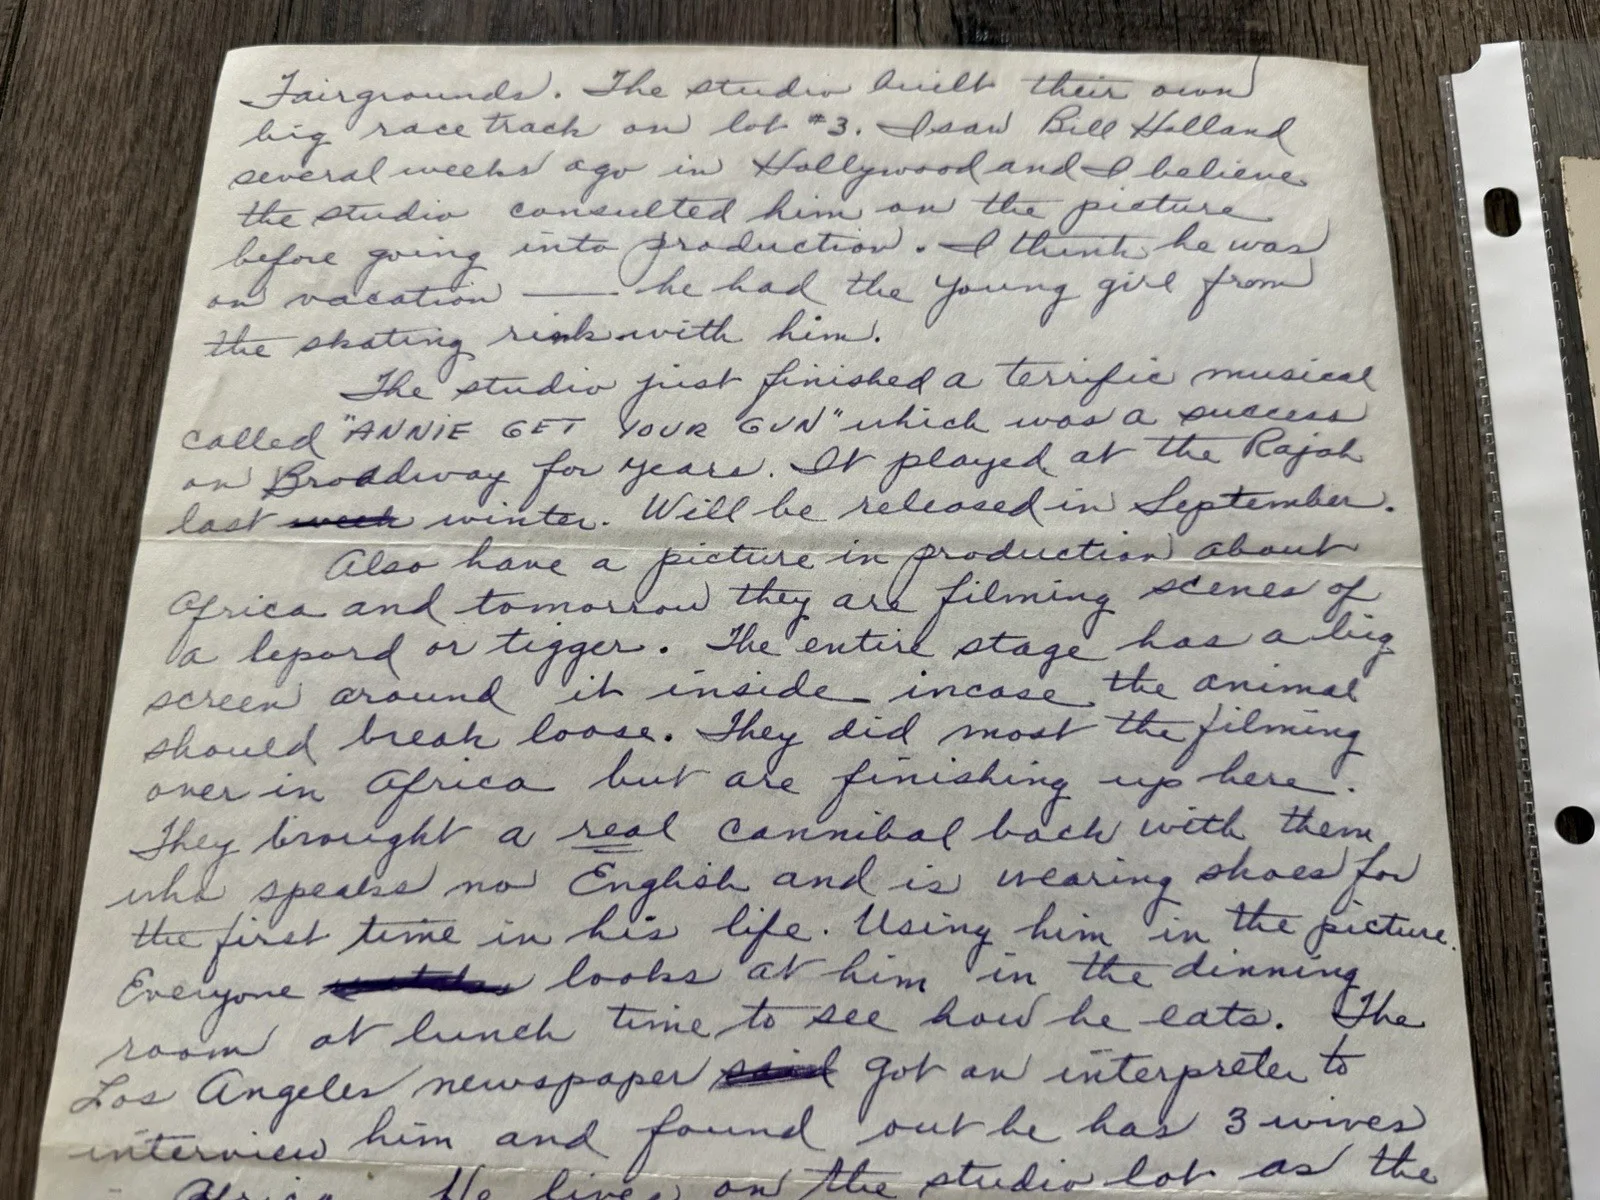 Fairgrounds. The studio built their own
big race track on lot #3. I saw Bill Holland
several weeks ago in Hollywood and I believe
the studio consulted him on the picture
before going into production. I think he was
on vacation — he had the young girl from
the skating rink with him.
The studio just finished a terrific musical
called "ANNIE GET YOUR GUN" which was a success
on Broadway for years. It played at the Rajah
last week winter. Will be released in September.
Also have a picture in production about
Africa and tomorrow they are filming scenes of
a lepard or tigger. The entire stage has a big
screen around it inside incase the animal
should break loose. They did most the filming
over in Africa but are finishing up here.
They brought a real cannibal back with them
who speaks no English and is wearing shoes for
the first time in his life. Using him in the picture.
Everyone looks at him in the dinning
room at lunch time to see how he eats. The
Los Angeles newspaper said got an interpreter to
interview him and found out he has 3 wives
Africa. He lives on the studio lot as the